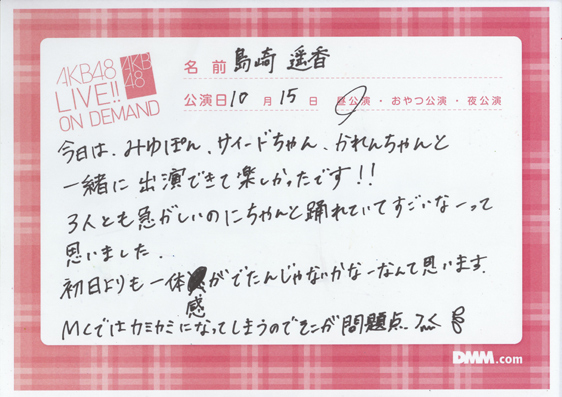 AKB48
LIVE!!
ON DEMAND
AKB
48
名前 島崎 遥香
公演日 10 月 15 日 昼公演・おやつ公演・夜公演
今日は、みゆぽん、サイードちゃん、かれんちゃんと
一緒に 出演できて楽しかったです!!
3人とも急がしいのにちゃんと踊れていてすごいなーって
思いました..
初日よりも一体 がでたんじゃないかなーなんて思います.
感
MCではカミカミになってしまうのでそこが問題点.
DMM.com